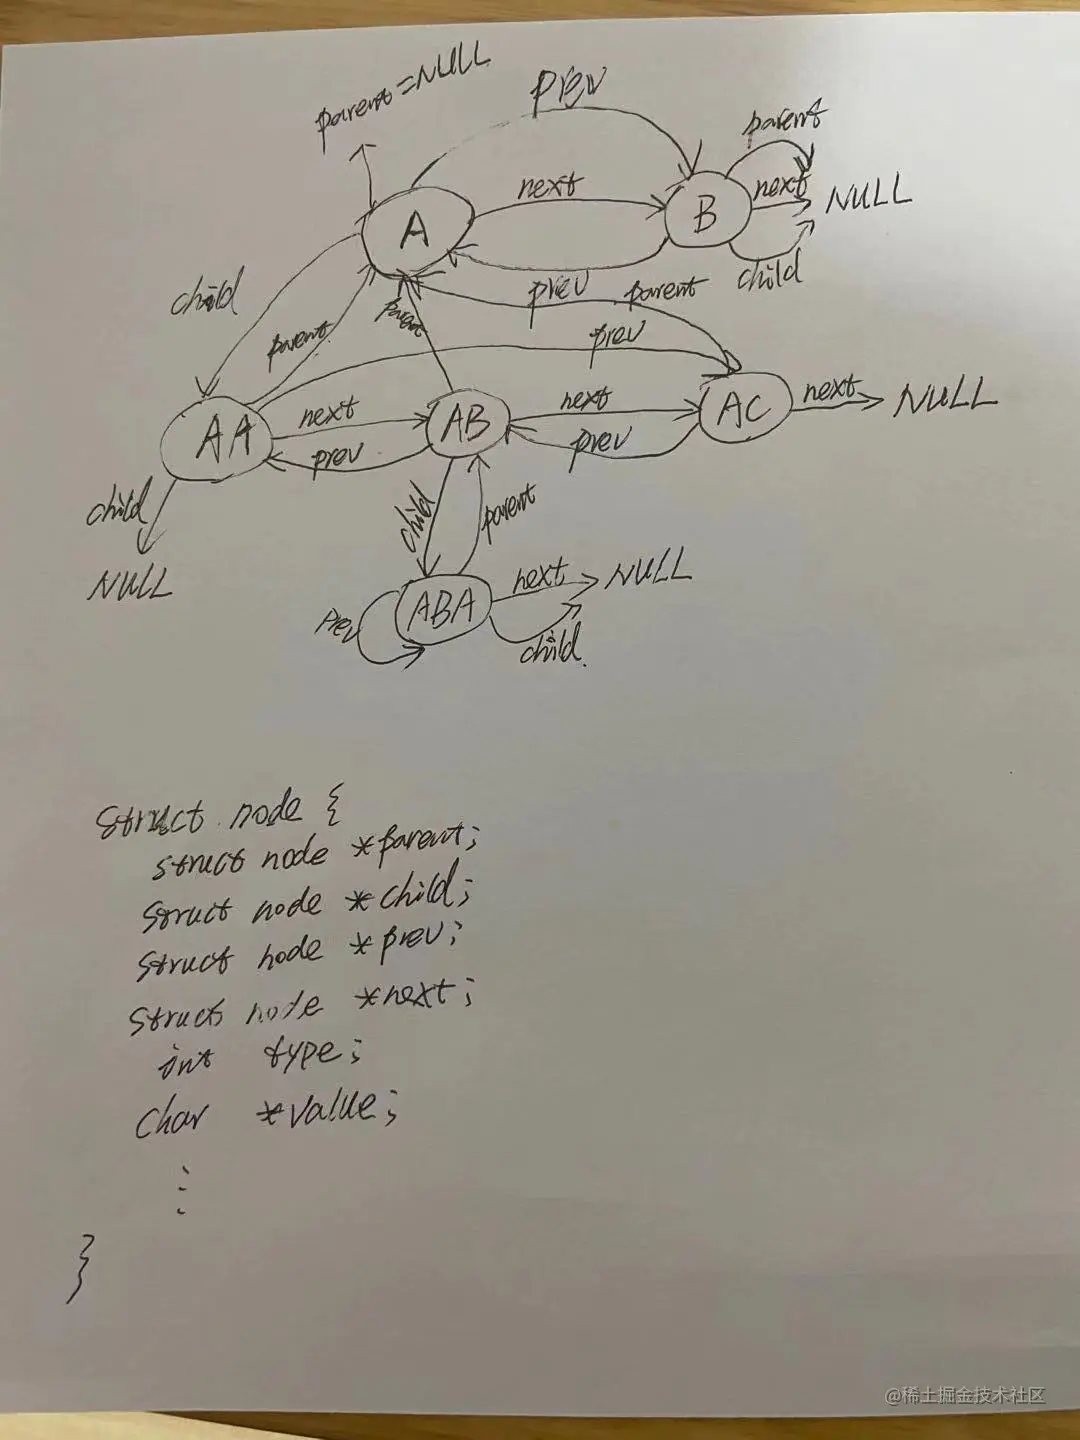 parent=NULL
prev
parent
A
next
B
next
NULL
child
prev
parent
child
parent
parent
prev
AA
next
prev
AB
next
prev
AC
next
NULL
child
NULL
child
parent
prev
ABA
next
NULL
child.
struct node {
struct node *parent;
struct node *child;
struct node *prev;
struct node *next;
int type;
char *value;
⋮
}
@稀土掘金技术社区